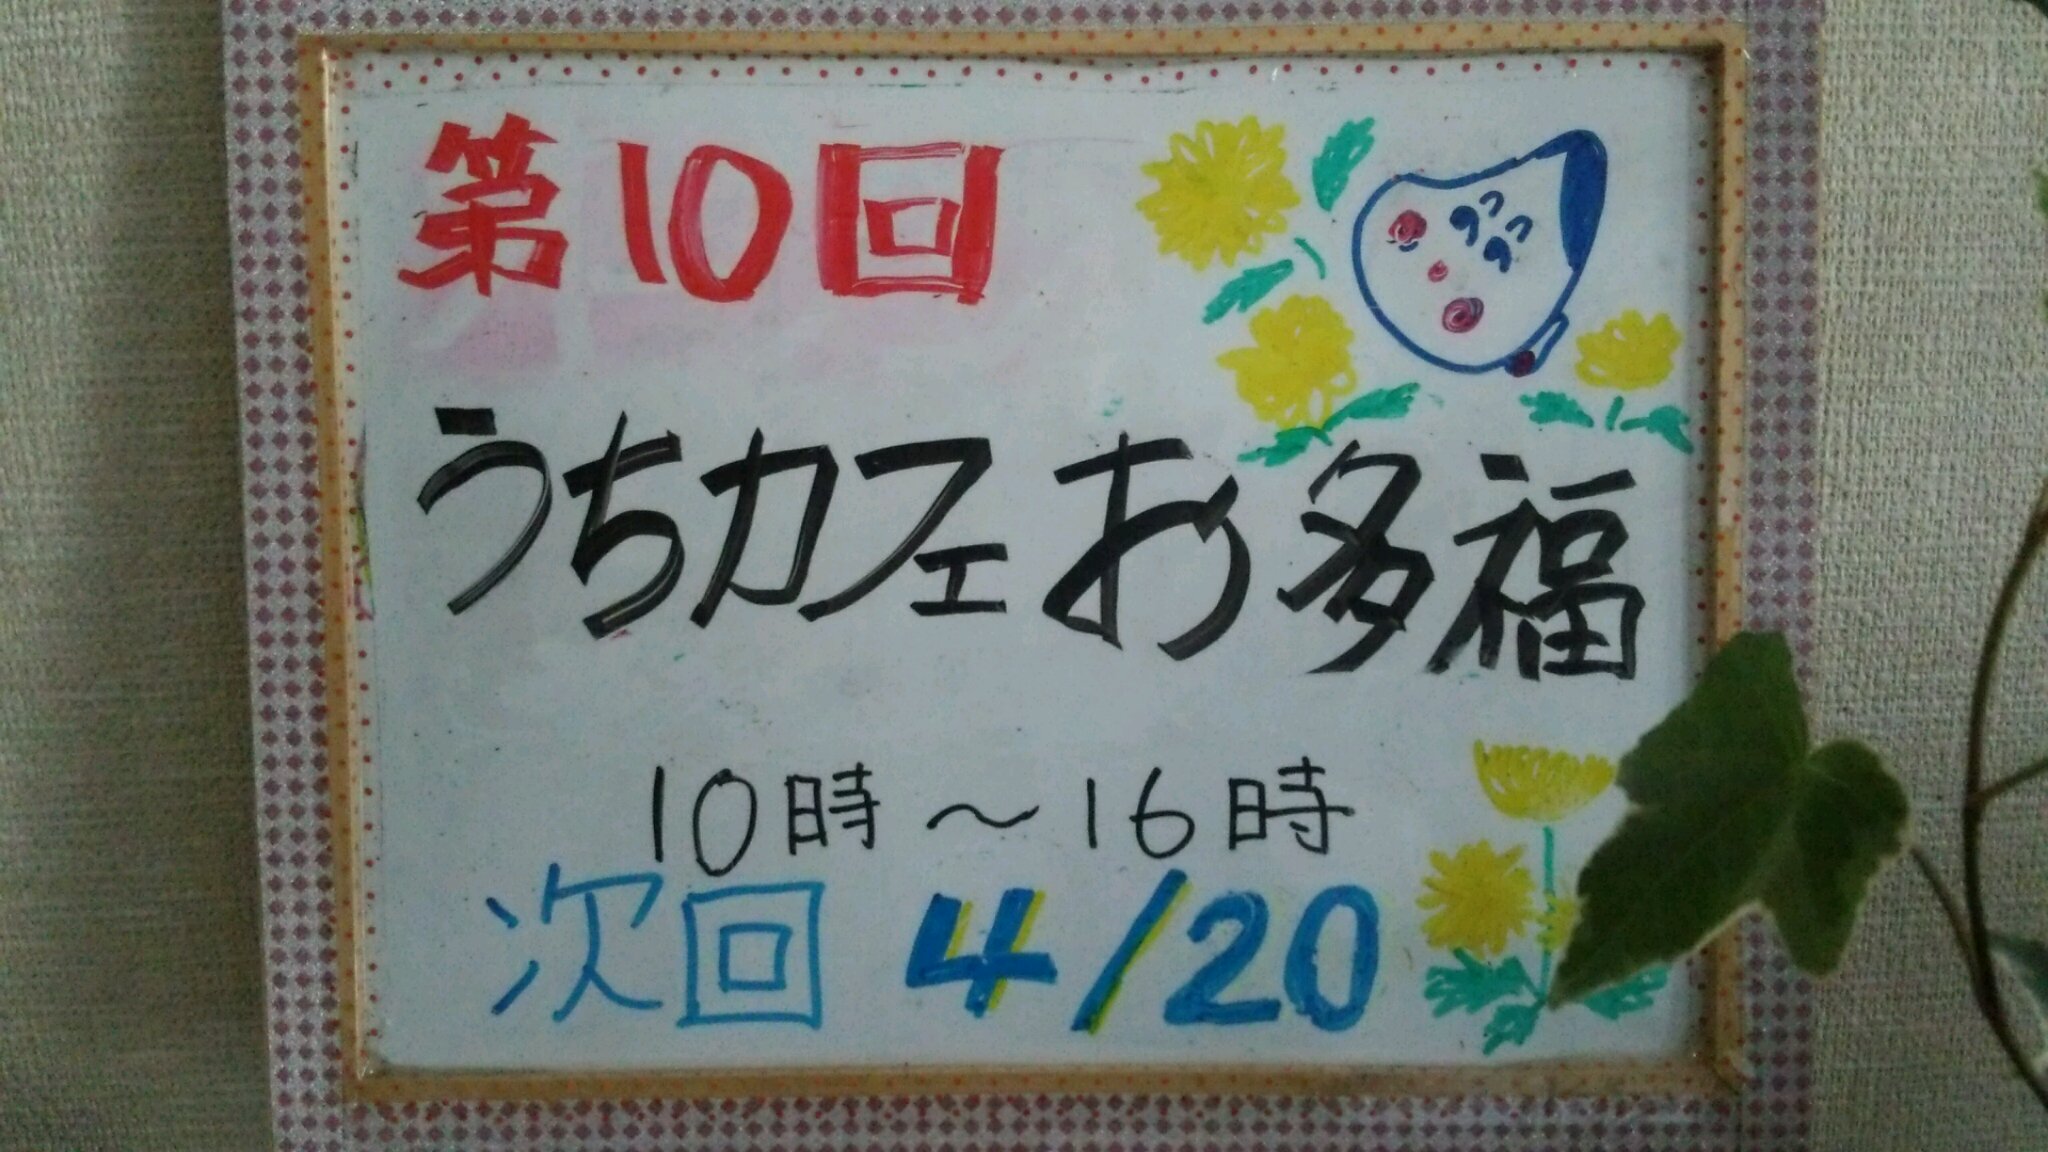 第10回
うちカフェお多福
10時～16時
次回 4/20